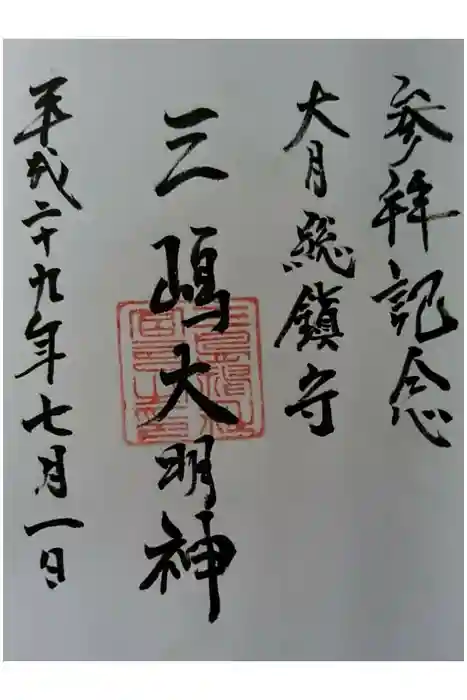 参拝記念
大月総鎮守
三嶋大明神
平成二十九年七月一日